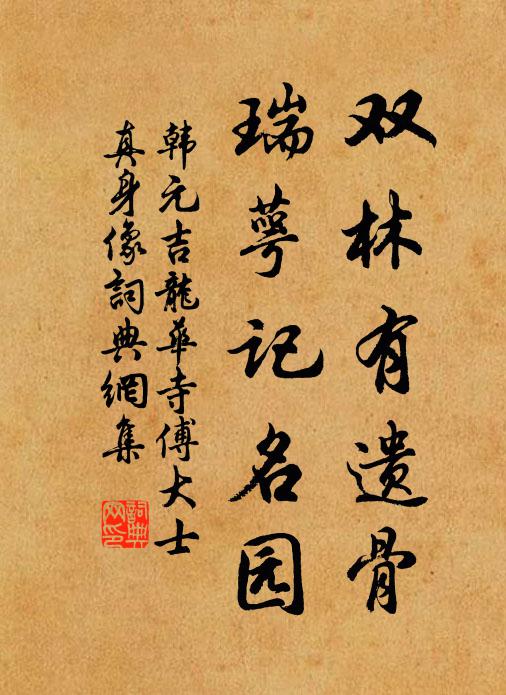 双林有遗骨
瑞萼记名园
韩元吉龍華寺傅大士
真身像詞典網集
詞典
网印